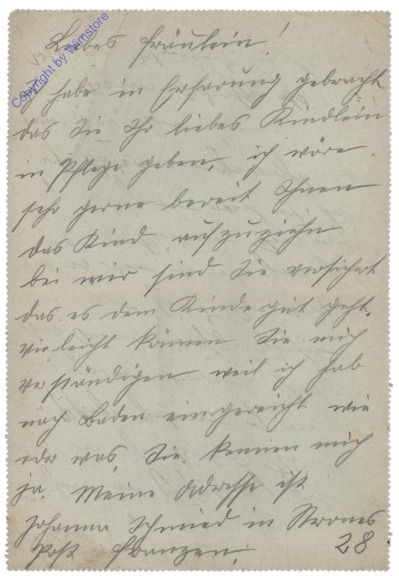 Liebes Fräulein!
Copyright by Wimstore
Ich habe in Erfarung gebracht
das Sie Ihr liebes Kindlein
in Pflege geben, ich wäre
sehr gerne bereit Ihnen
das Kind aufzuziehn
bei mir sind Sie versichert
das es dem Kinde gut geht.
Vieleicht können Sie mich
verständigen weil ich hab
nach Baden eingereicht wie
oder was, Sie kennen mich
ja. Meine Adresse ist
Johanna Schmied in Strones
Post Franzen.
28